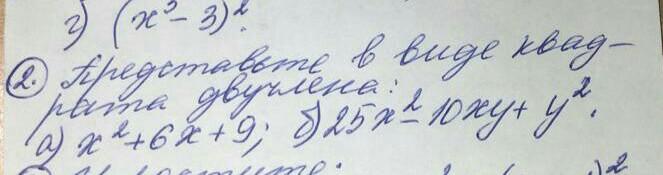 г) (x³ - 3)².
2. Представьте в виде квад-
рата двучлена:
а) x² + 6x + 9; б) 25x² - 10xy + y².